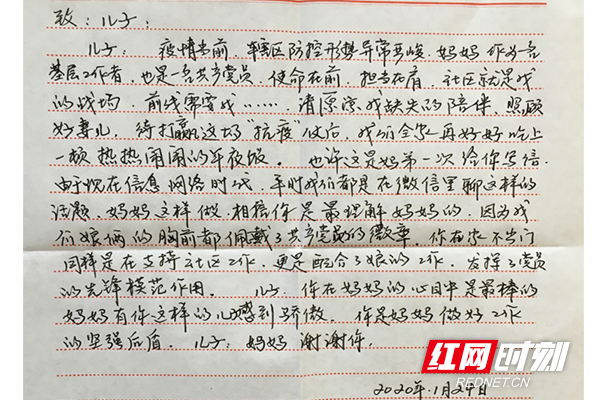 致：儿子：
儿子： 疫情当前，辖区防控形势异常严峻，妈妈作为一名
基层工作者，也是一名共产党员，使命在前，担当在肩，社区就是我
的战场，前线需要我……，请原谅我缺失的陪伴，照顾
好妻儿，待打赢这场“抗疫”仗后，我们全家再好好吃上
一顿热热闹闹的年夜饭。 也许这是妈第一次给你写信
由于现在信息网络时代，平时我们都是在微信里聊这样的
话题，妈妈这样做，相信你是最理解妈妈的，因为我
们娘俩的胸前都佩戴了共产党员的徽章，你在家不出门
同样是在支持社区工作，更是配合了娘的工作，发挥了党员
的先锋模范作用。 儿子，你在妈妈的心目中是最棒的
妈妈有你这样的儿感到骄傲。 你是妈妈做好工作
的坚强后盾。 儿子：妈妈谢谢你。
2020年1月29日
红网时刻
REDNET.CN